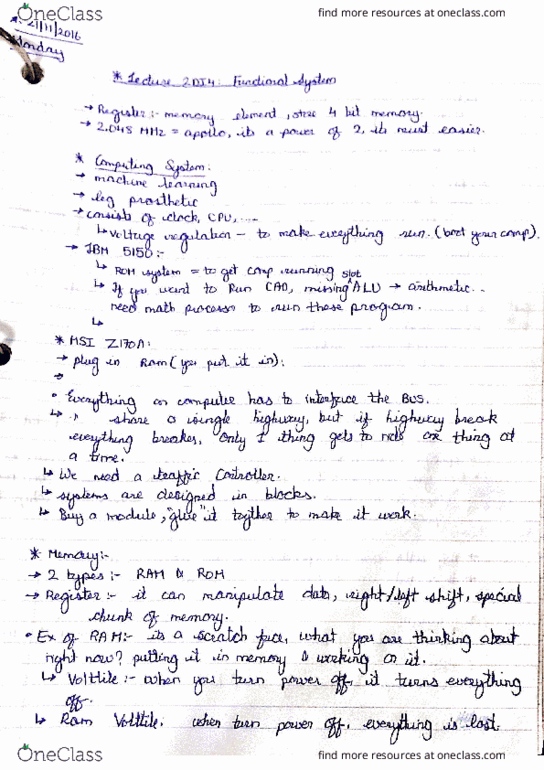 OneClass
find more resources at oneclass.com
21/11/2016
Monday
* Lecture 2DI4: Functional System
→ Register:- memory element, store 4 bit memory.
→ 2.048 MHz = apollo, its a power of 2, its must easier.
* Computing System:
→ machine learning
→ leg prosthetic
→ consists of clock, CPU, ...
↳ Voltage regulation - to make everything run. (boot your comp).
→ IBM 5150:-
↳ ROM system = to get comp running slot
↳ If you want to Run CAD, missing ALU → arithmetic..
need math processor to run these program.
↳
* MSI Z170A:
→ plug in Ram (you put it in):
→
• Everything on computer has to interface the BUS.
↳ share a single highway, but if highway break
everything breaks, only 1 thing gets to ride one thing at
a time.
↳ We need a traffic controller.
↳ systems are designed in blocks.
↳ Buy a module, "glue" it togther to make it work.
* Memory:-
→ 2 types:- RAM & ROM
→ Register:- it can manipulate data, right/left shift, special
chunk of memory.
• Ex of RAM:- its a scratch, what you are thinking about
right now? putting it in memory & working on it.
↳ Volttile:- when you turn power off it turns everything
off.
↳ Ram Volttile: when turn power off, everything is lost
OneClass
find more resources at oneclass.com